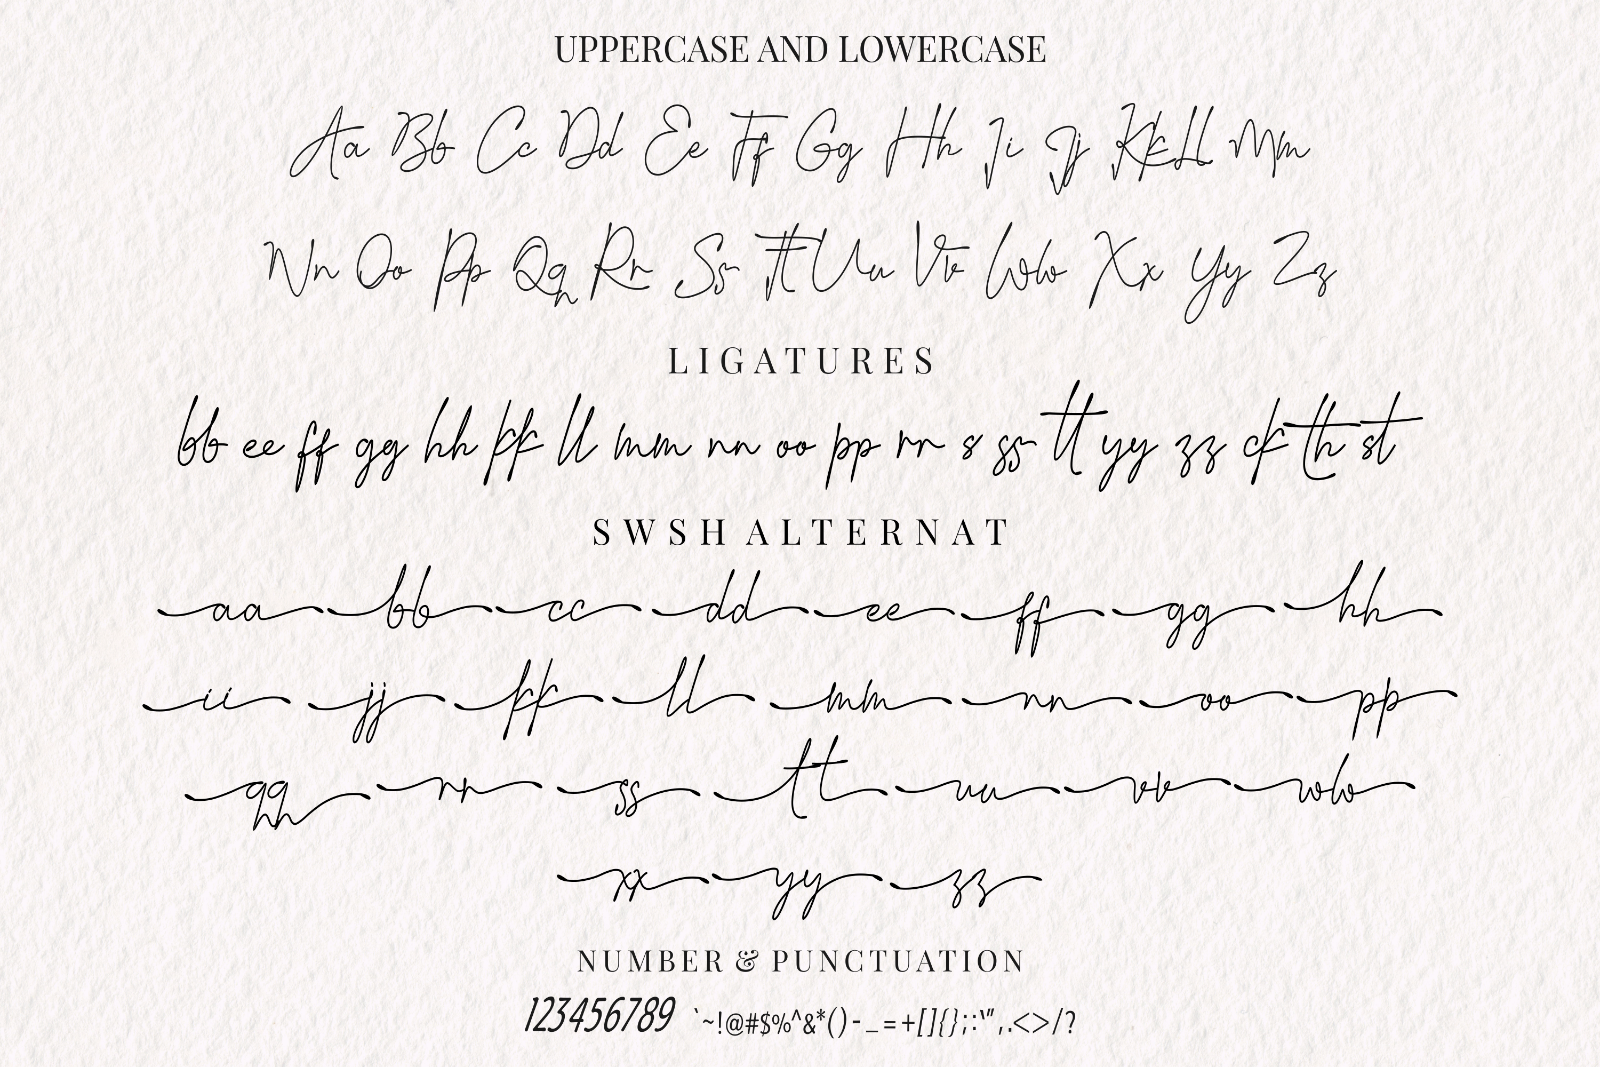 UPPERCASE AND LOWERCASE
Aa Bb Cc Dd Ee Ff Gg Hh Ii Jj Kk Ll Mm
Nn Oo Pp Qq Rr Ss Tt Uu Vv Ww Xx Yy Zz
LIGATURES
bb ee ff gg hh kk ll mm nn oo pp rr s ss tt yy zz ck th st
SWSH ALTERNAT
aa bb cc dd ee ff gg hh
ii jj kk ll mm nn oo pp
qq rr ss tt uu vv ww
xx yy zz
NUMBER & PUNCTUATION
123456789 `~!@#$%^&*()-_=+[]{};:'"",.<>/?